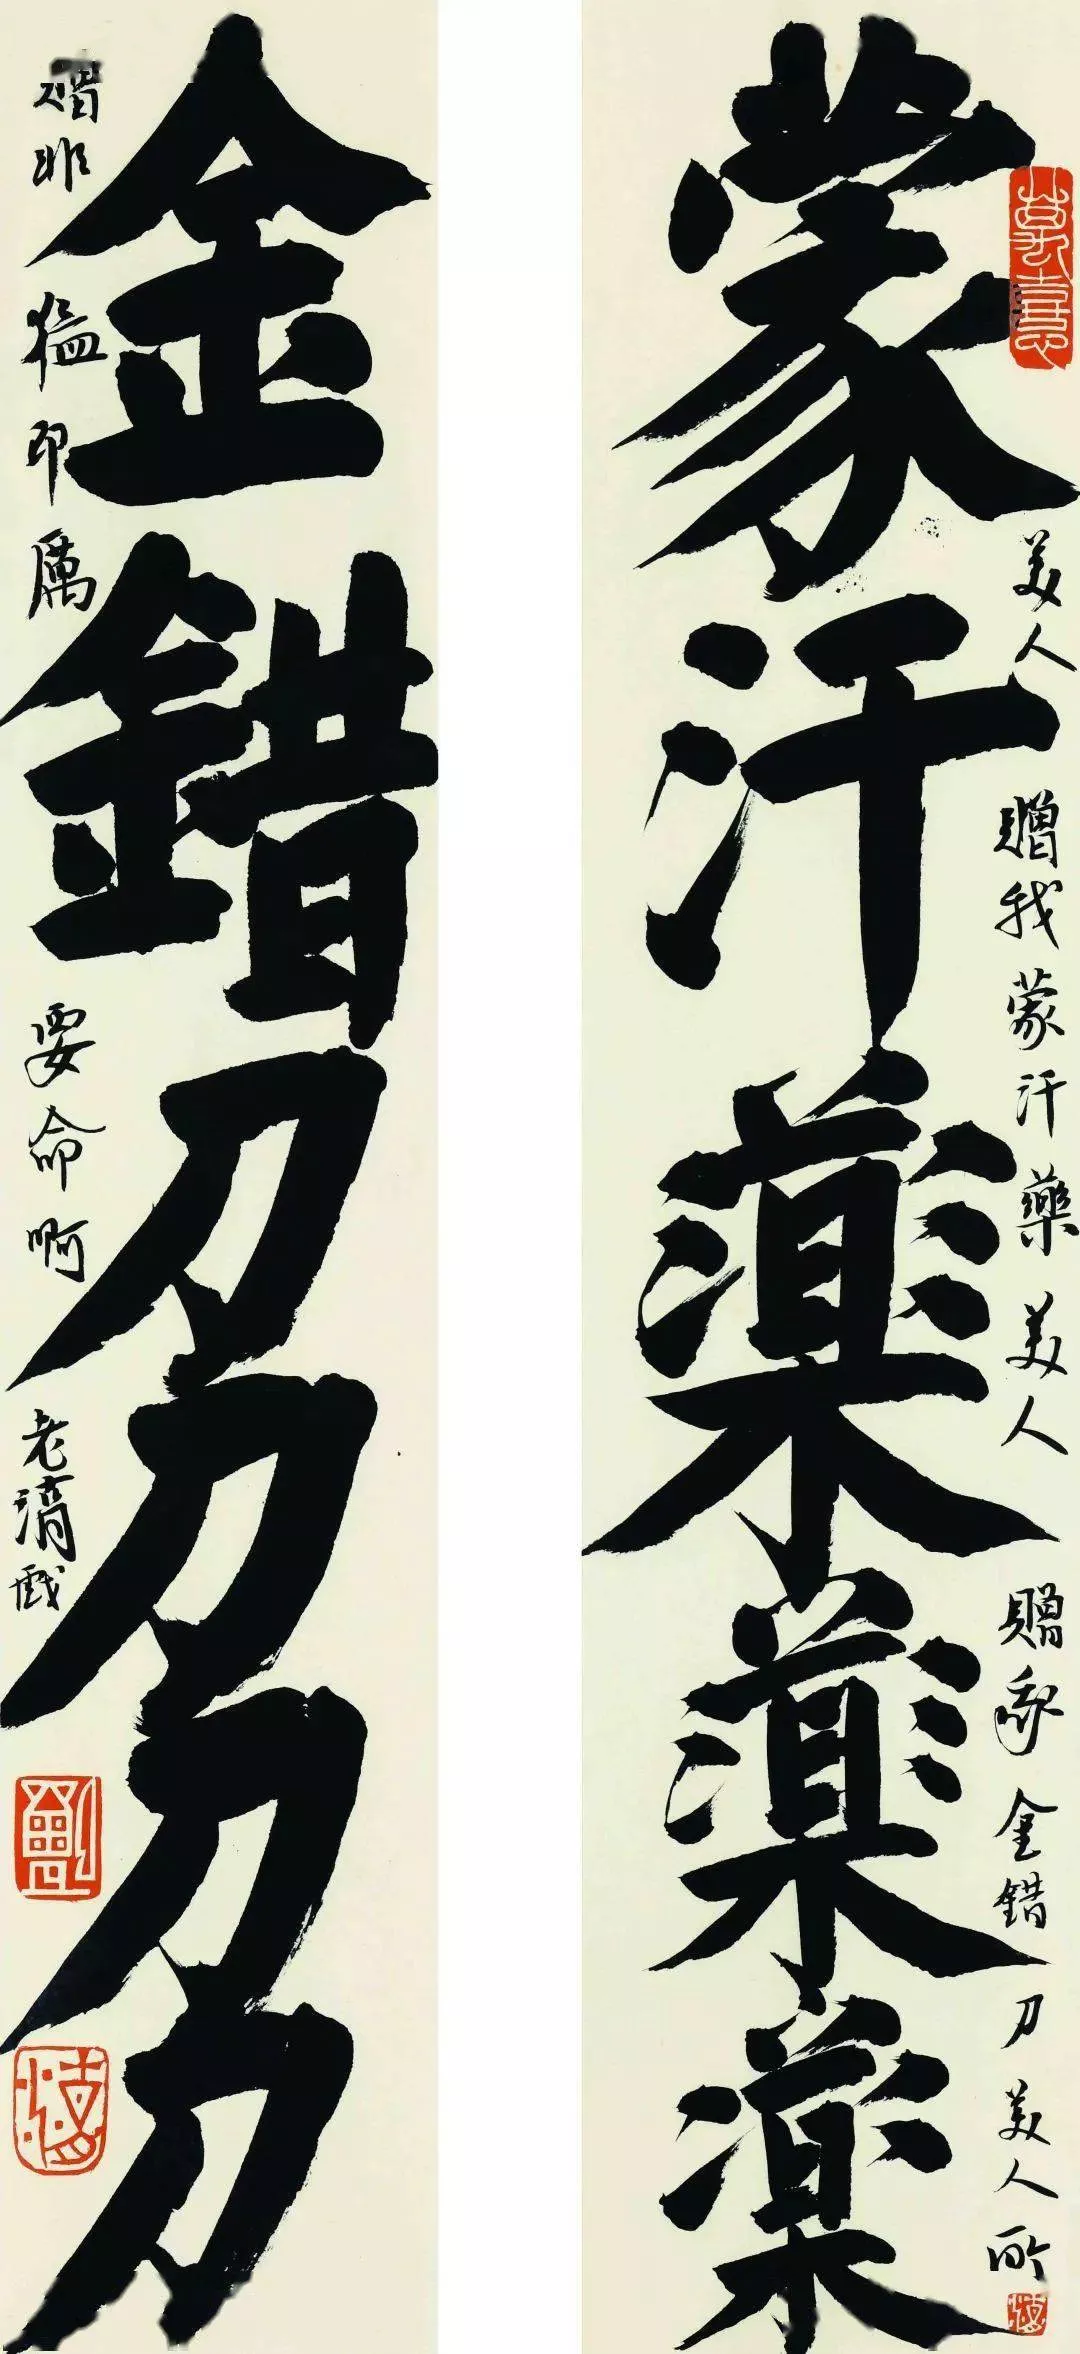 美人贈我蒙汗藥美人贈我金錯刀美人所
蒙汗藥藥藥
金錯刀刀刀刀
贈非猛即厲要命啊老戲